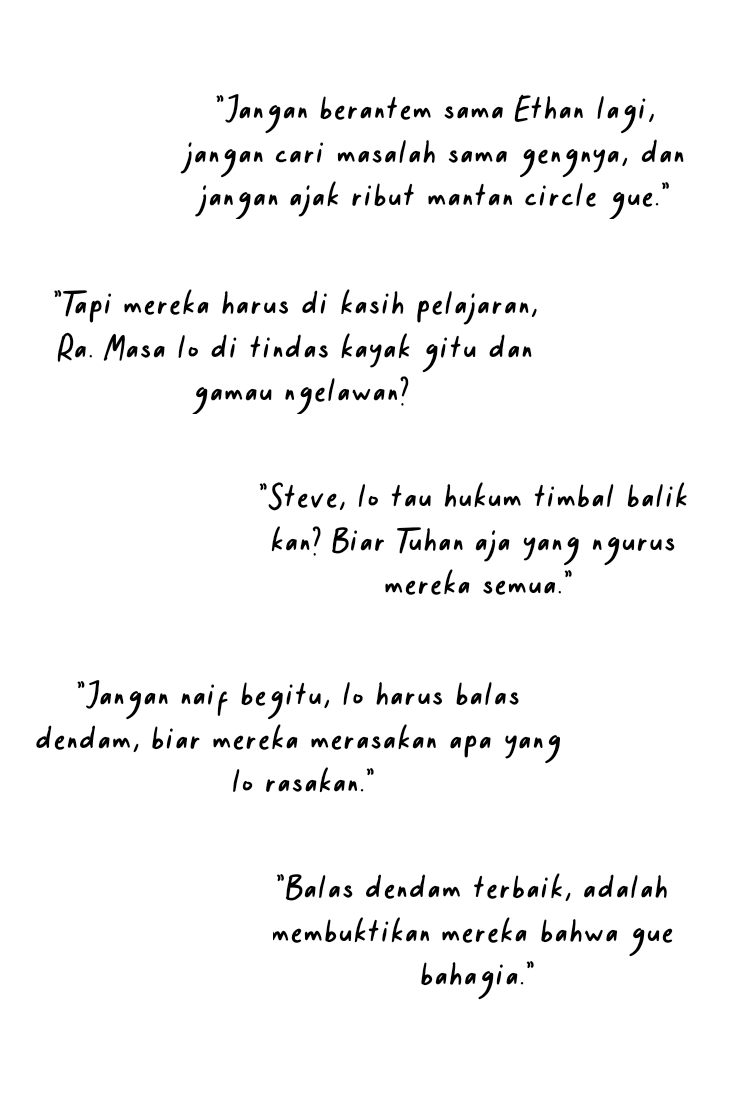 "Jangan berantem sama Ethan lagi,
jangan cari masalah sama gengnya, dan
jangan ajak ribut mantan circle gue."
"Tapi mereka harus di kasih pelajaran,
Ra. Masa lo di tindas kayak gitu dan
gamau ngelawan?
"Steve, lo tau hukum timbal balik
kan? Biar Tuhan aja yang ngurus
mereka semua."
"Jangan naif begitu, lo harus balas
dendam, biar mereka merasakan apa yang
lo rasakan."
"Balas dendam terbaik, adalah
membuktikan mereka bahwa gue
bahagia."